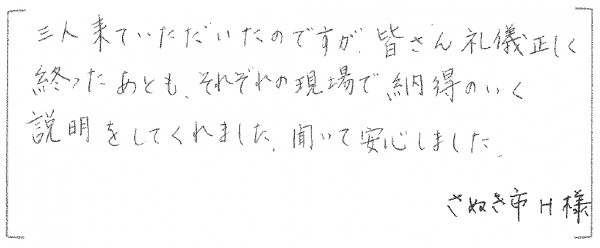 三人来ていただいたのですが、皆さん礼儀正しく
終ったあとも、それぞれの現場で納得のいく
説明をしてくれました。聞いて安心しました。
さぬき市 H様